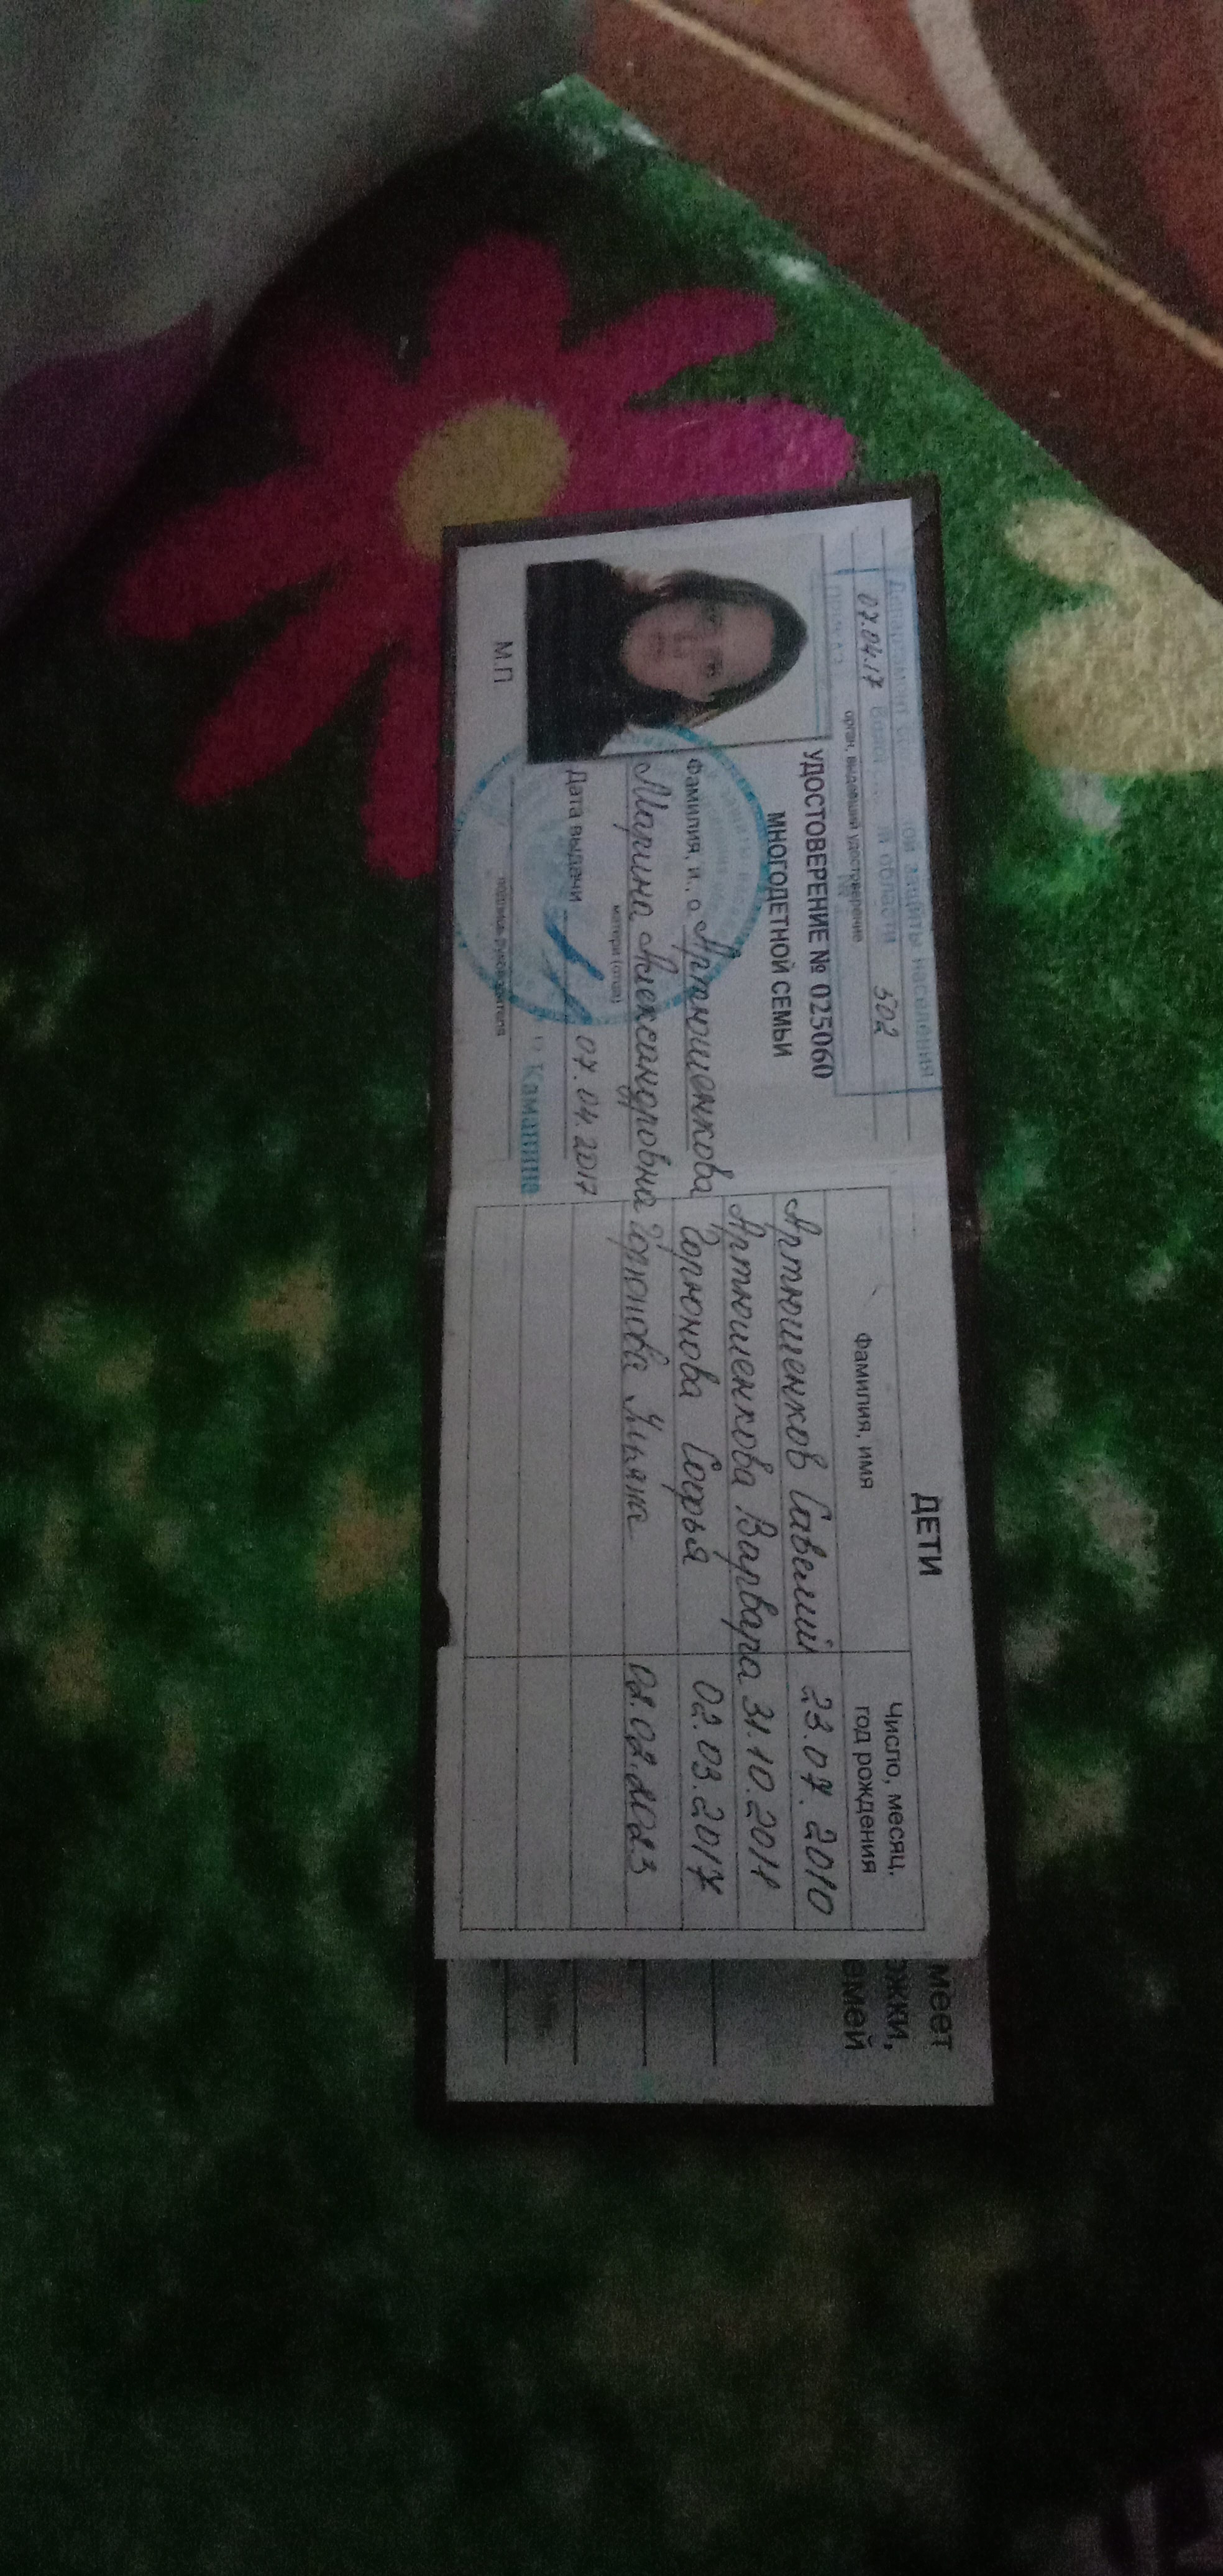 07.04.17
502
орган, выдавший удостоверение
УДОСТОВЕРЕНИЕ № 025060
МНОГОДЕТНОЙ СЕМЬИ
Фамилия, и., о Артюшенкова
Марина Александровна
матери (отца)
Дата выдачи 07.04.2017
Каманина
подпись руководителя
М.П
ДЕТИ
Фамилия, имя
Число, месяц, год рождения
Артюшенков Савелий 23.07.2010
Артюшенкова Варвара 31.10.2011
Горюнова Софья 02.03.2017
Горюнова Ульяна 02.02.2023
меет
жки,
емей